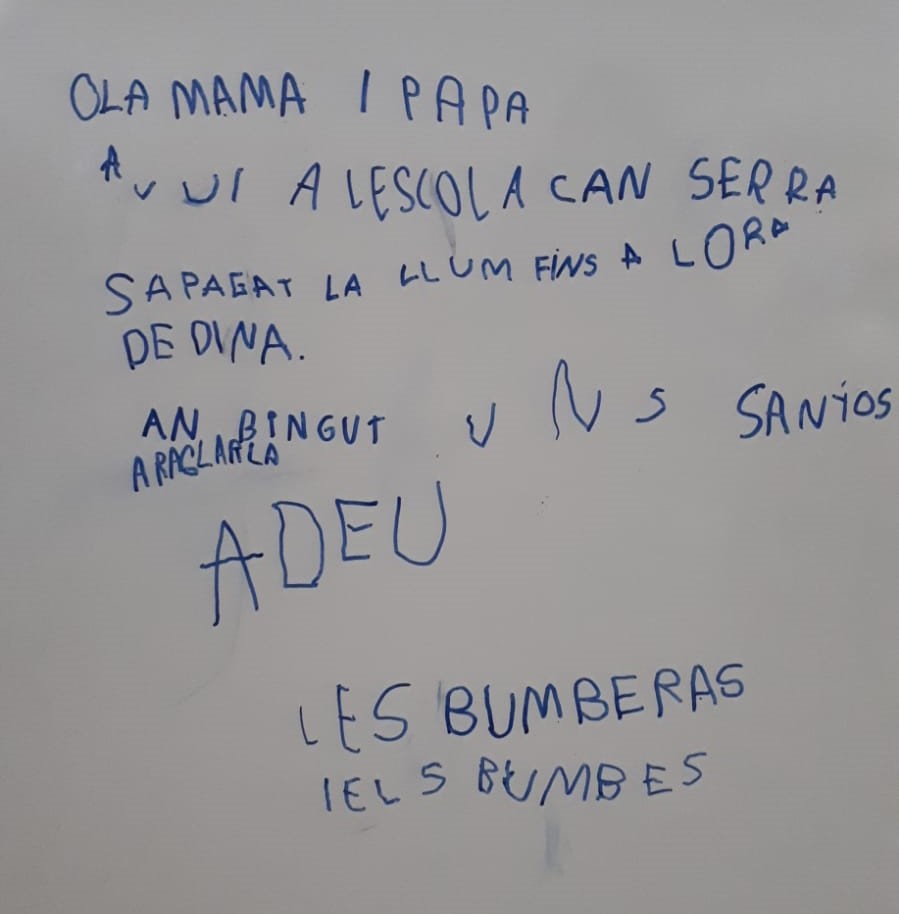 OLA MAMA I PAPA
AVUI A LESCOLA CAN SERRA
SAPAGAT LA LLUM FINS A LORA
DE DINA.
AN BINGUT UNS SANYOS
ARAGLARLA
ADEU
LES BUMBERAS
IELS BUMBES